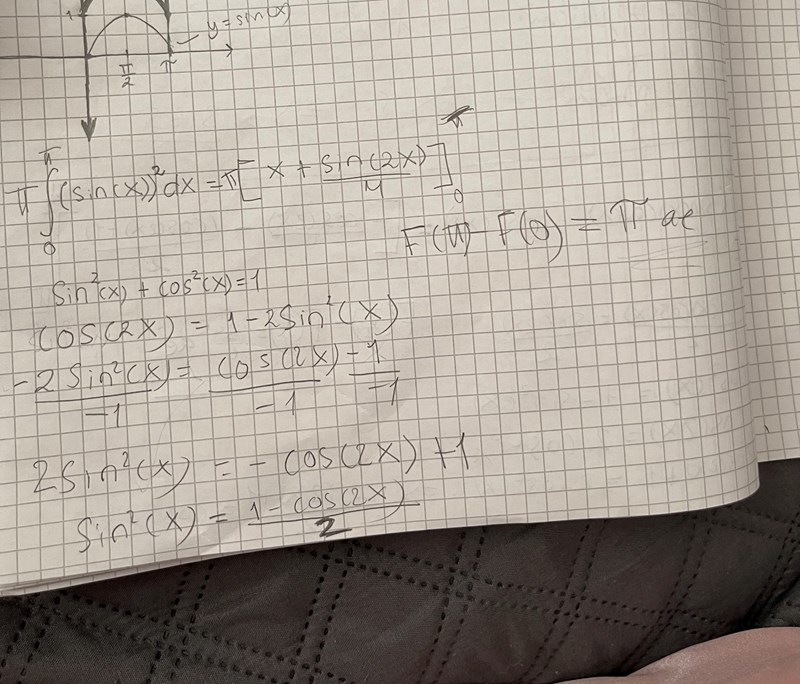 1
y = sin(x)
π/2 π
π ∫₀^π (sin(x))² dx = π [ x + sin(2x)/4 ]₀^π
F(π) - F(0) = π ae
sin²(x) + cos²(x) = 1
cos(2x) = 1 - 2sin²(x)
-2 sin²(x)/-1 = cos(2x)/-1 -1/-1
2sin²(x) = - cos(2x) + 1
sin²(x) = 1 - cos(2x)/2